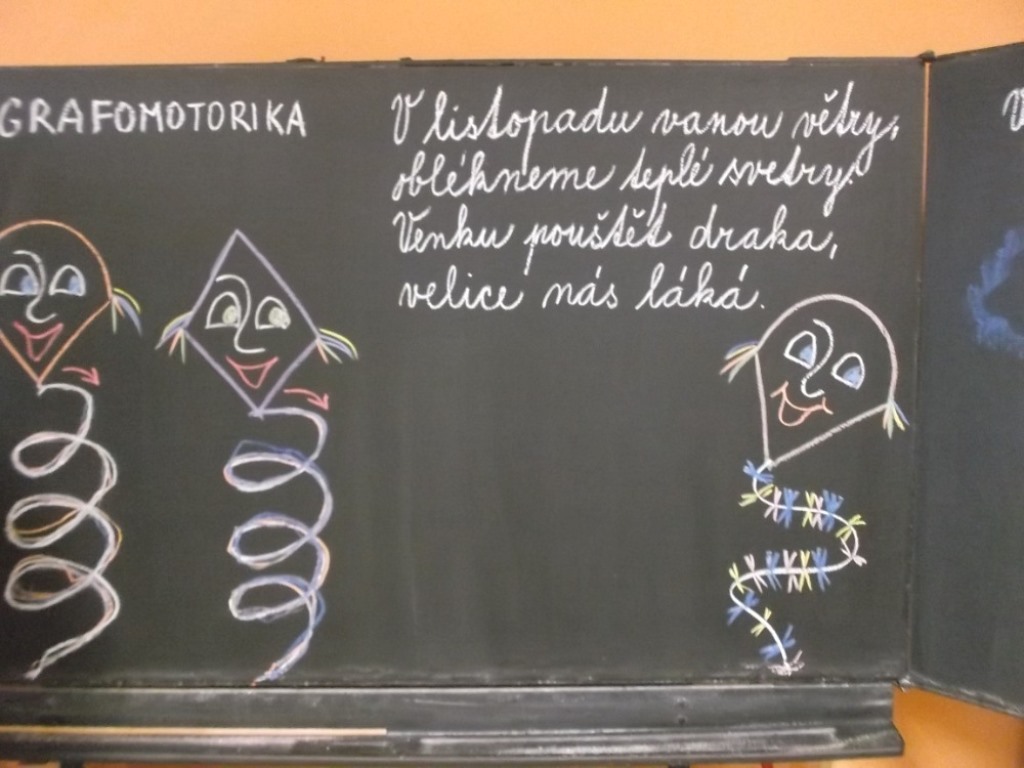 GRAFOMOTORIKA
V listopadu vanou větry,
oblékneme teplé svetry.
Venku pouštět draka,
velice nás láká.